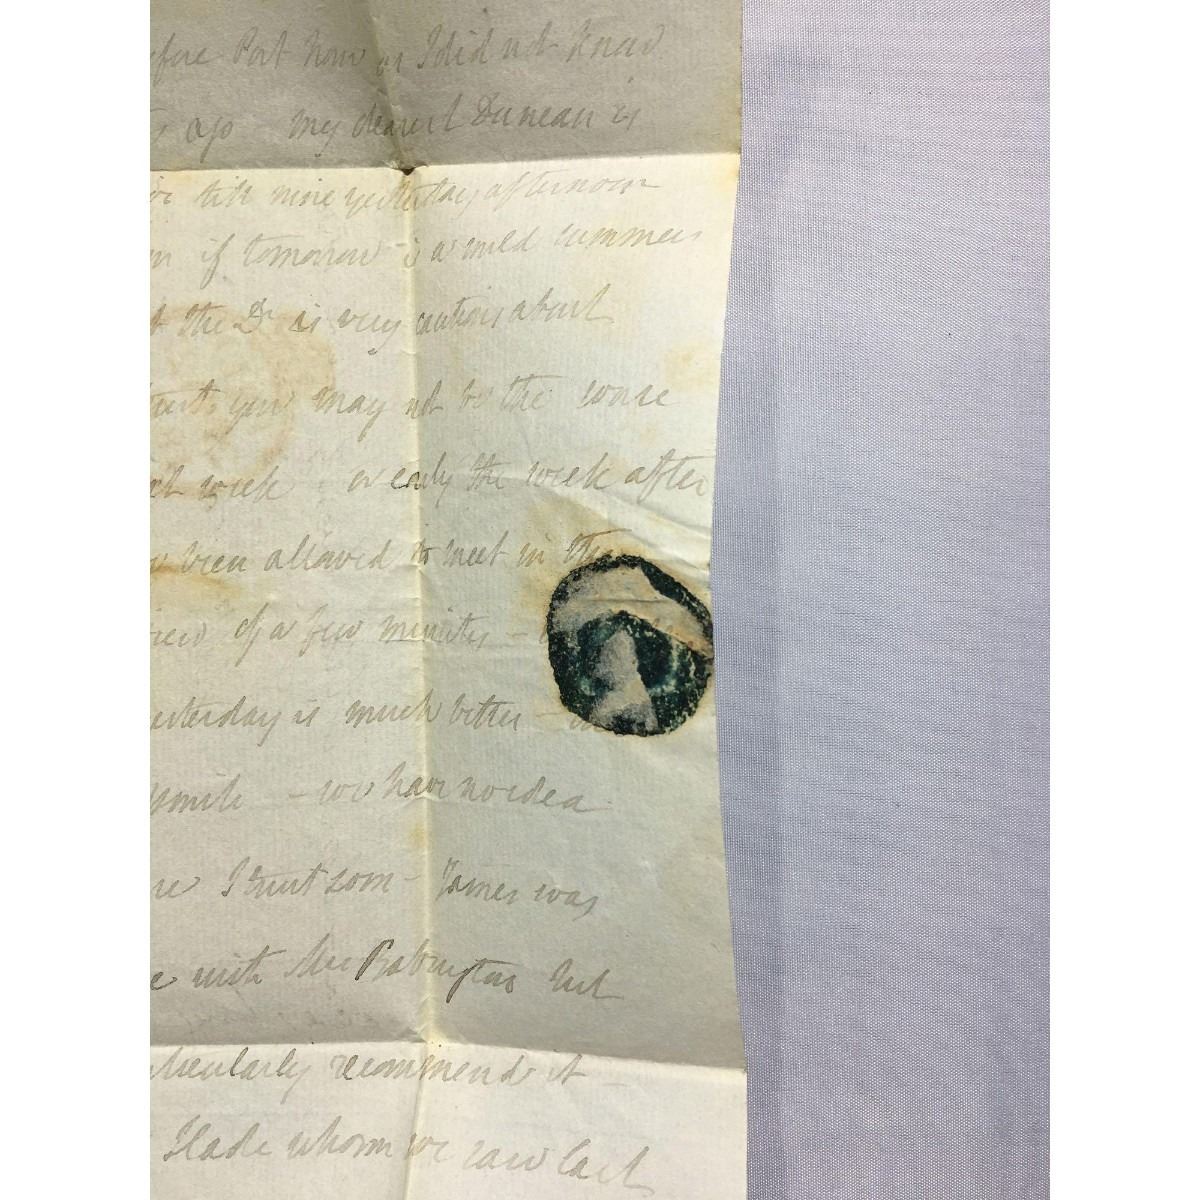 efore Post hour as I did not know
ago my dearest Duncan is
till nine yesterday afternoon
if tomorrow is a mild summers
the Dr is very cautious about
trust you may not be the worse
week or early the week after
been allowed to meet in the
of a few minutes -
esterday is much better -
smile - we have no idea
I trust soon - James was
with Mrs Babington but
ticularly recommends it -
Slade whom we saw last